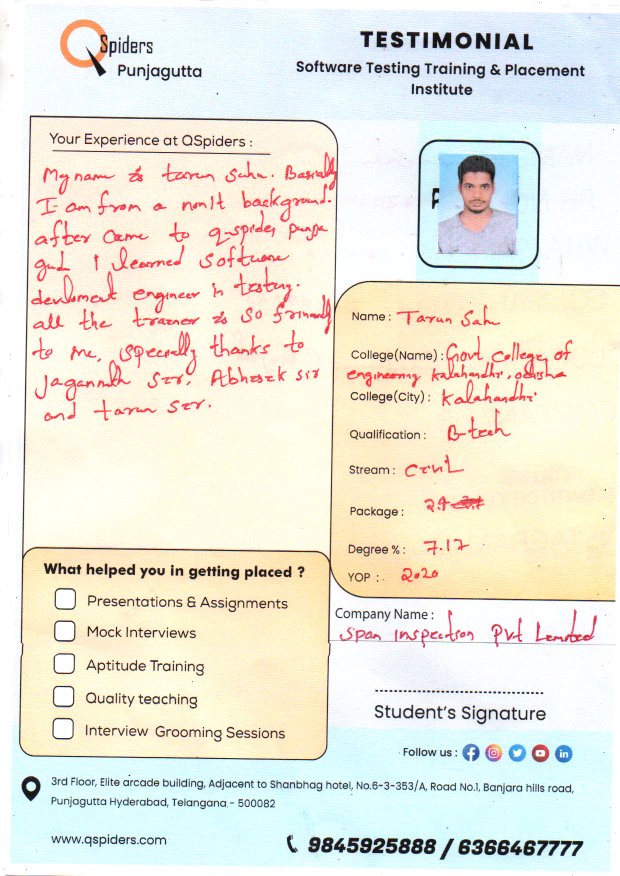 QSpiders
Punjagutta
TESTIMONIAL
Software Testing Training & Placement
Institute
Your Experience at QSpiders :
My name is tarun Sahu. Basically
I am from a nonIt background.
after came to q-spides punja
gud I learned Software
devloment engineer in testing.
all the trainer is so frinnedly
to me, specially thanks to
Jagannath Sir, Abhisek sir
and tarun sir.
Name : Tarun Sahu
College(Name) : Govt College of
engineering Kalahandi, odisha
College(City) : Kalahandi
Qualification : B-tech
Stream : Civil
Package : 2.4
Degree % : 7.17
YOP : 2020
Company Name :
Span Inspection Pvt Limited
What helped you in getting placed ?
Presentations & Assignments
Mock Interviews
Aptitude Training
Quality teaching
Interview Grooming Sessions
Student's Signature
Follow us :
3rd Floor, Elite arcade building, Adjacent to Shanbhag hotel, No.6-3-353/A, Road No.1, Banjara hills road,
Punjagutta Hyderabad, Telangana - 500082
www.qspiders.com
9845925888 / 6366467777